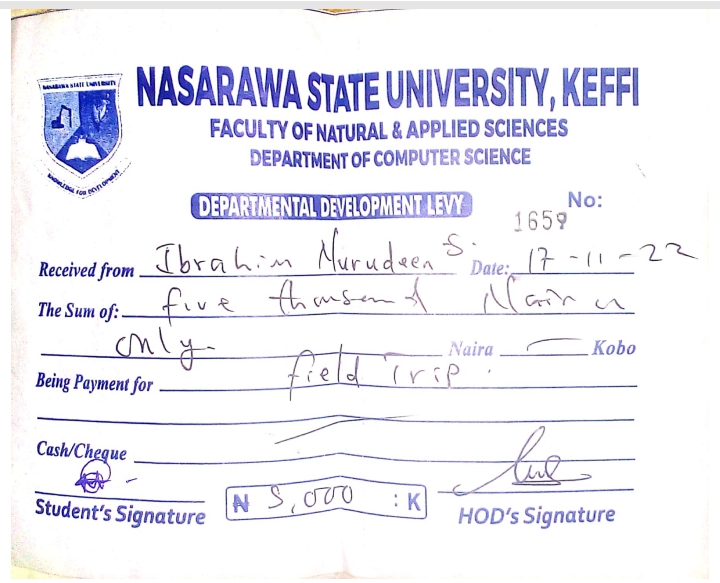 NASARAWA STATE UNIVERSITY
KNOWLEDGE FOR DEVELOPMENT
NASARAWA STATE UNIVERSITY, KEFFI
FACULTY OF NATURAL & APPLIED SCIENCES
DEPARTMENT OF COMPUTER SCIENCE
DEPARTMENTAL DEVELOPMENT LEVY No:
1659
Received from Ibrahim Nurudeen S. Date: 17-11-22
The Sum of: five thousand Naira
only- Naira Kobo
Being Payment for field Trip.
Cash/Cheque
Student's Signature ₦ 5,000 : K HOD's Signature